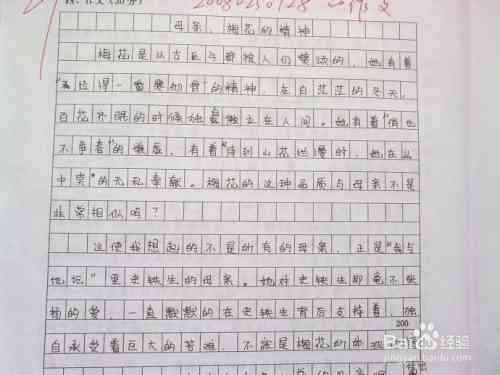 作文(50分)
200802150128 作文
母亲，梅花的精神
梅花是从古至今都被人们赞颂的，她有着
"不经得一番寒彻骨"的精神，在白茫茫的冬天，
百花不眠的时候独自傲立在人间。她有着"俏也
不争春"的傲展，有着"待到山花烂漫时，她在丛
中笑"的无私奉献。梅花的这种品质与母亲不是
非常相似吗？
这使我想起的不是所有的母亲，正是"我与
地坛"里史铁生的母亲。她对史铁生那毫不张
扬的爱，一直默默的在史铁生背后支持着，独
200
自承受着巨大的苦难，不就是梅花的
Baidu经验
jingyan.baidu.com